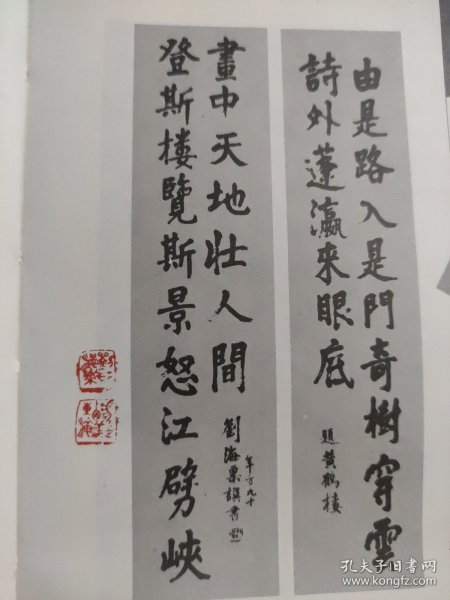 由是路入是門奇樹穿雲
詩外蓬瀛來眼底
題黄鶴樓
登斯樓覽斯景怒江劈峽
畫中天地壯人間
年方九十
劉海粟譔書
孔夫子旧书网
www.kongfz.com